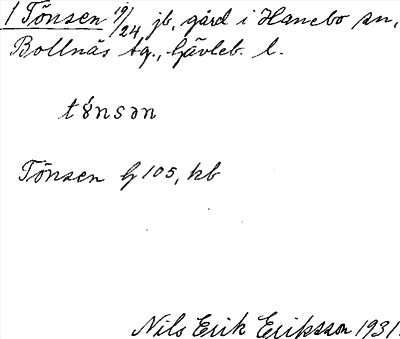 1 Tönsen 19/24, jb, gård i Hanebo sn,
Bollnäs tg., Gävleb. l.
tȣ́nsən
Tönsen G 105, kb
Nils Erik Eriksson 1931.